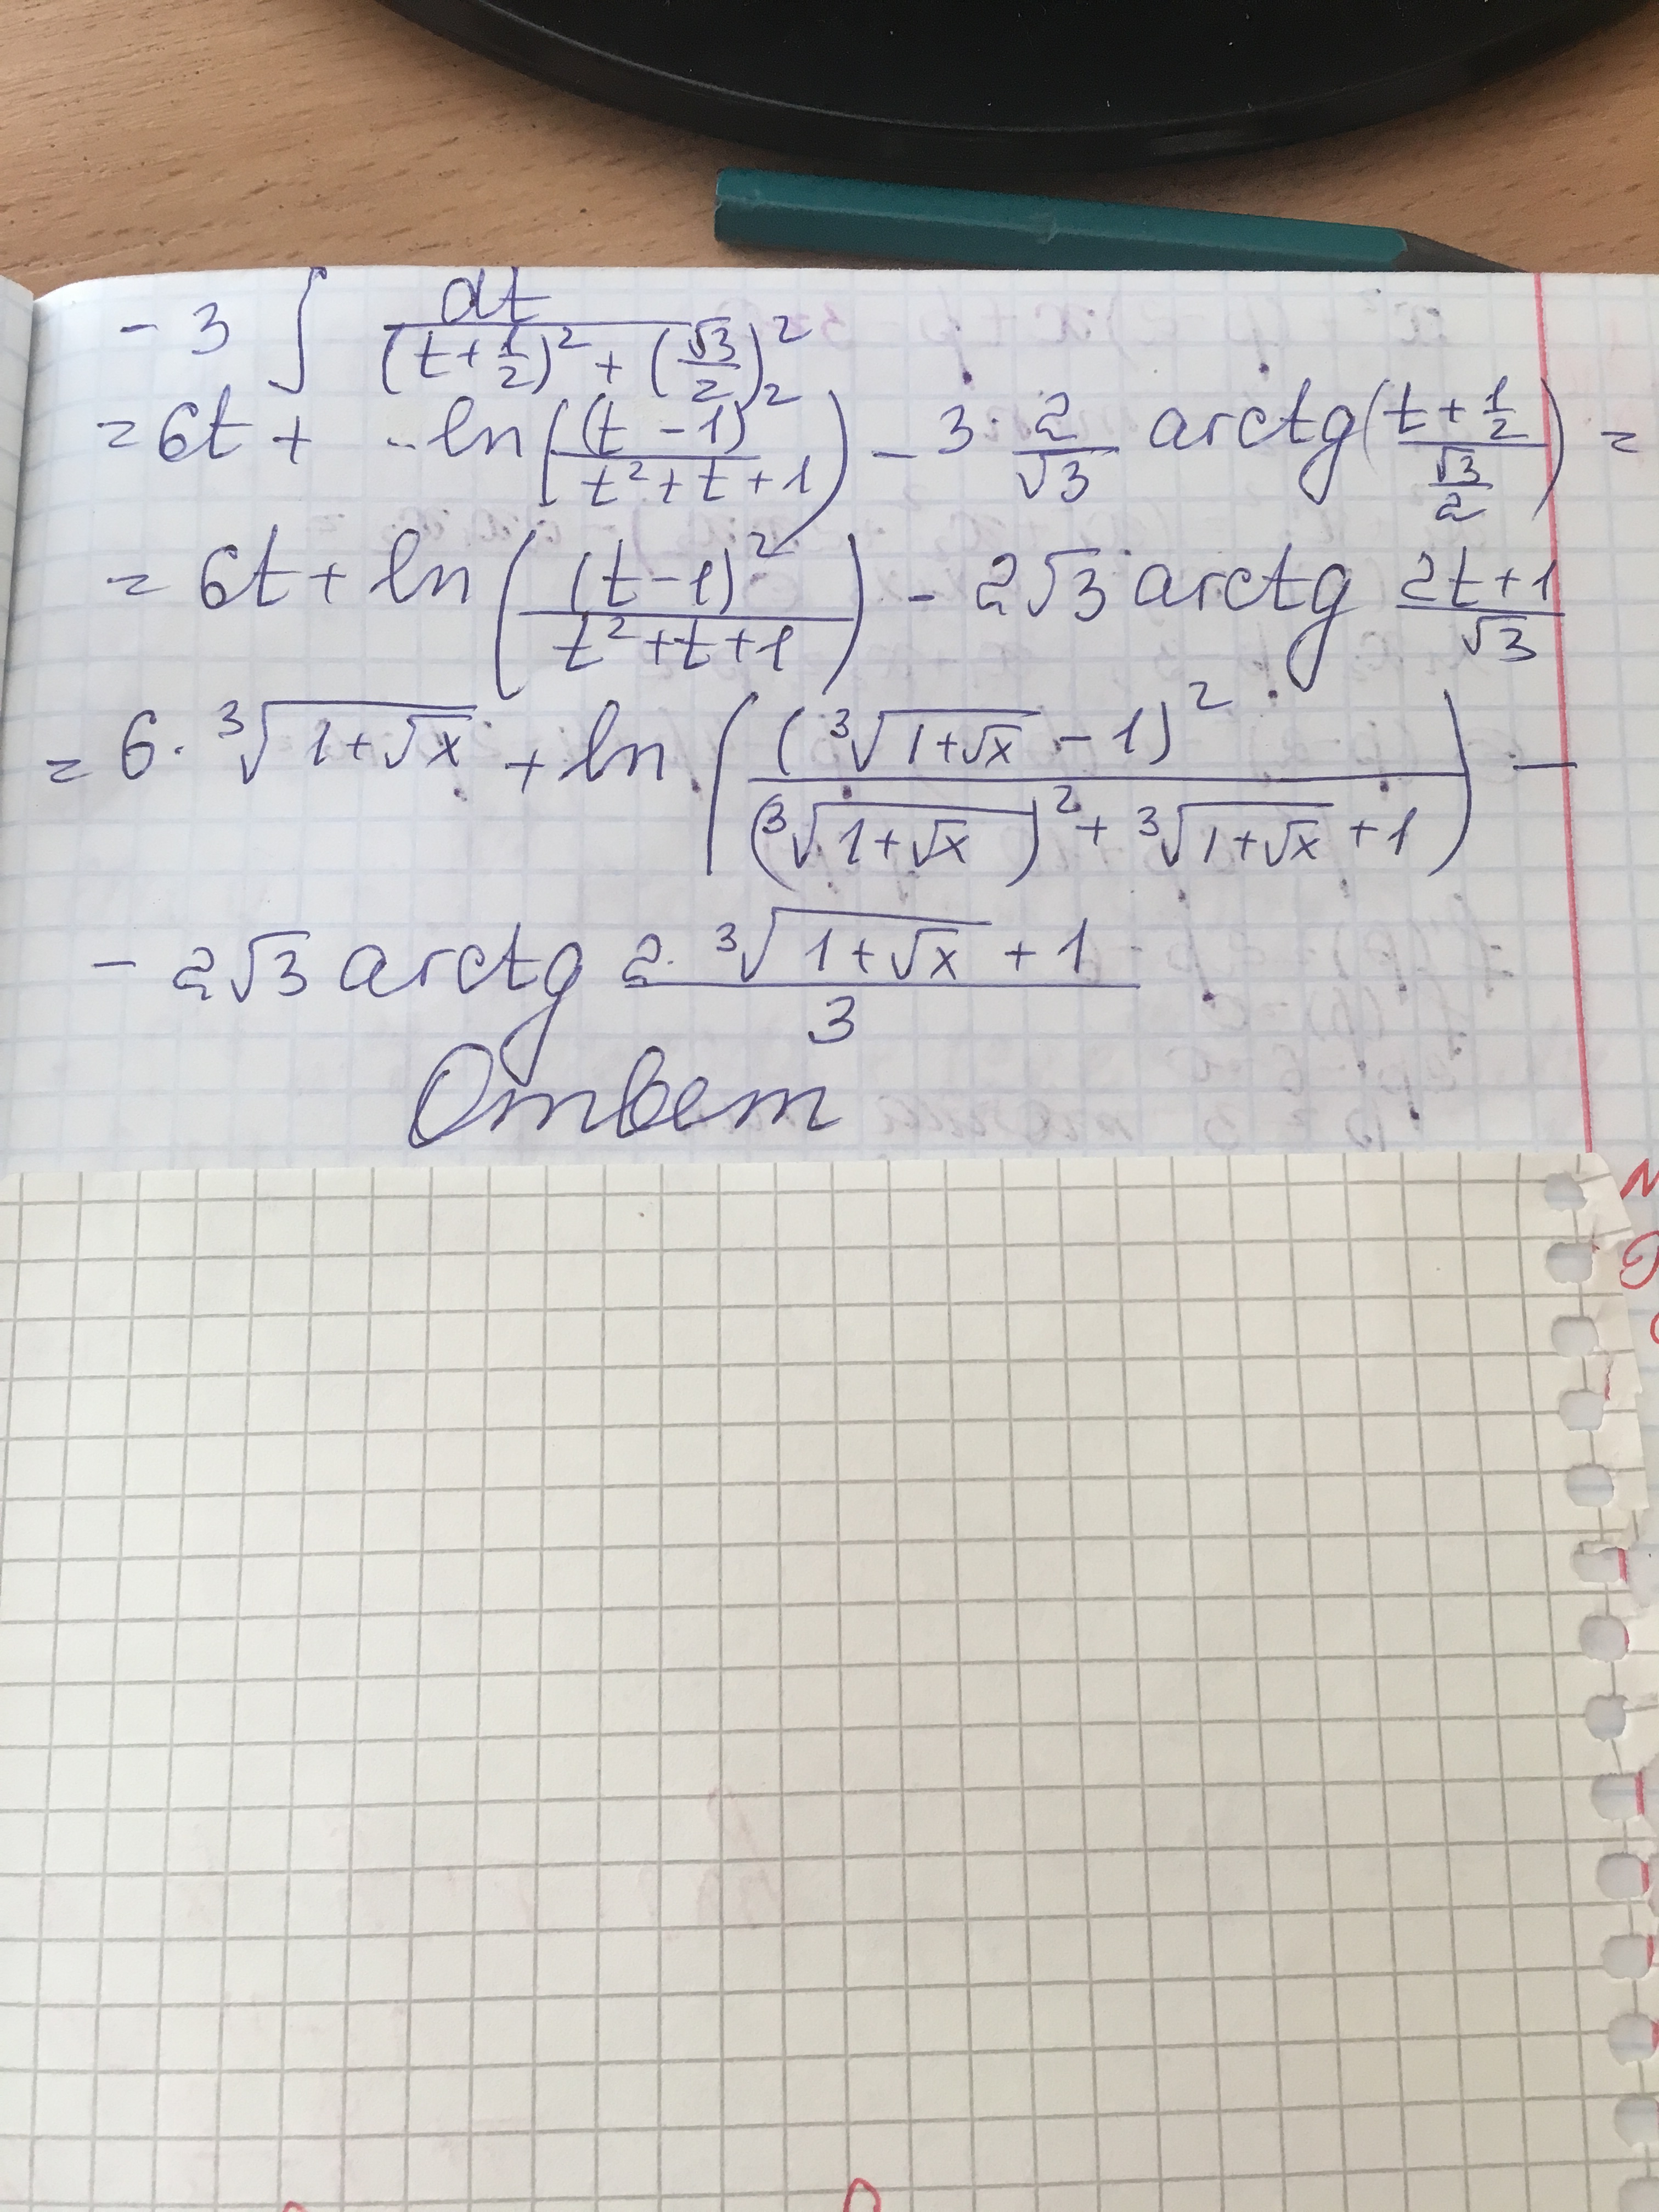 - 3 ∫ dt / ((t + 1/2)² + (√3/2)²)
= 6t + ln((t - 1)² / (t² + t + 1)) - 3 · 2/√3 arctg((t + 1/2) / (√3/2)) =
= 6t + ln((t - 1)² / (t² + t + 1)) - 2√3 arctg (2t + 1)/√3
= 6 · ³√(1+√x) + ln((³√(1+√x) - 1)² / ((³√(1+√x))² + ³√(1+√x) + 1)) -
- 2√3 arctg (2 · ³√(1+√x) + 1)/3
Ответ